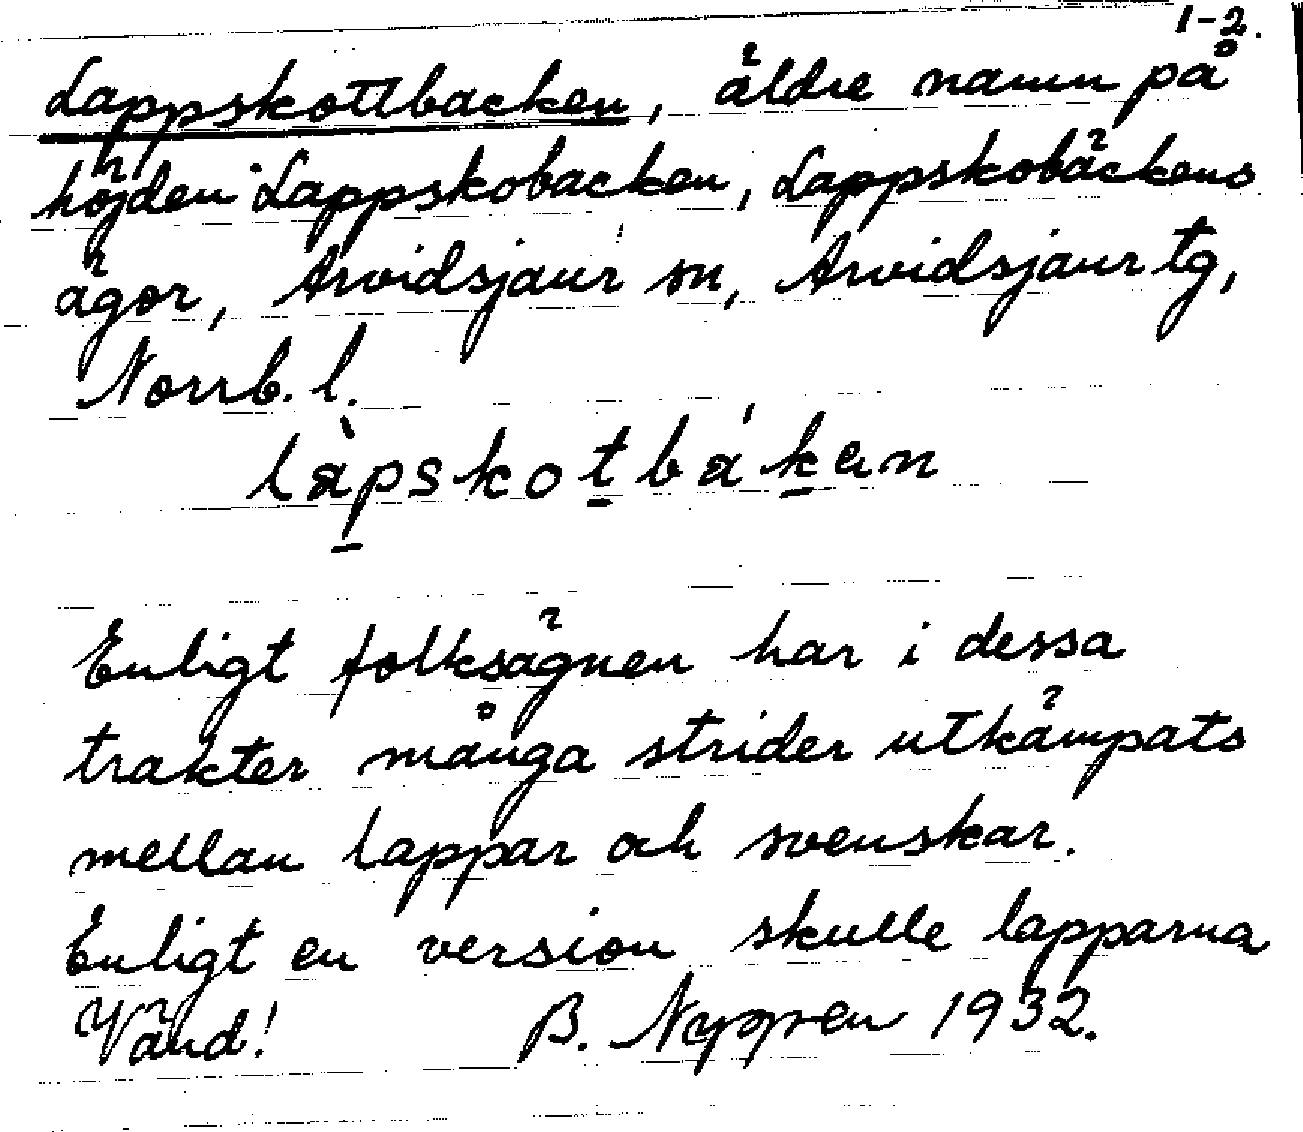 1-2.
Lappskottbacken, äldre namn på
höjden Lappskobacken, Lappskobäckens
ägor, Arvidsjaur sn, Arvidsjaur tg,
Norrb. l.
làpskotbákan
Enligt folksägnen har i dessa
trakter många strider utkämpats
mellan lappar och svenskar.
Enligt en version skulle lapparna
Vänd! B. Nyppen 1932.